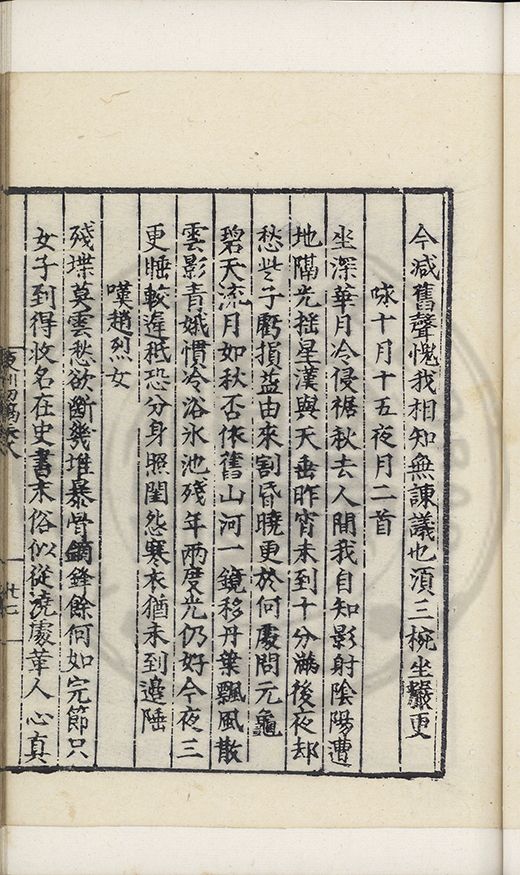 今减舊聲愧我相知無諫議也湏三椀坐嚴更
咏十月十五夜月二首
坐深華月冷侵裾秋去人間我自知影射陰陽遭
地隔光揺星漢與天垂昨宵未到十分滿後夜却
愁些子虧損益由來割昏曉更於何處問元龜
碧天流月如秋否依舊山河一鏡移丹葉飄風散
雲影青娥慣冷浴氷池殘年兩度光仍好今夜三
更睡較遲秪恐分身照閨怨寒衣猶未到邉陲
嘆趙烈女
殘堞莫雲愁欲斷幾堆暴骨鏑鋒餘何如完節只
女子到得收名在史書末俗似從澆處華人心真